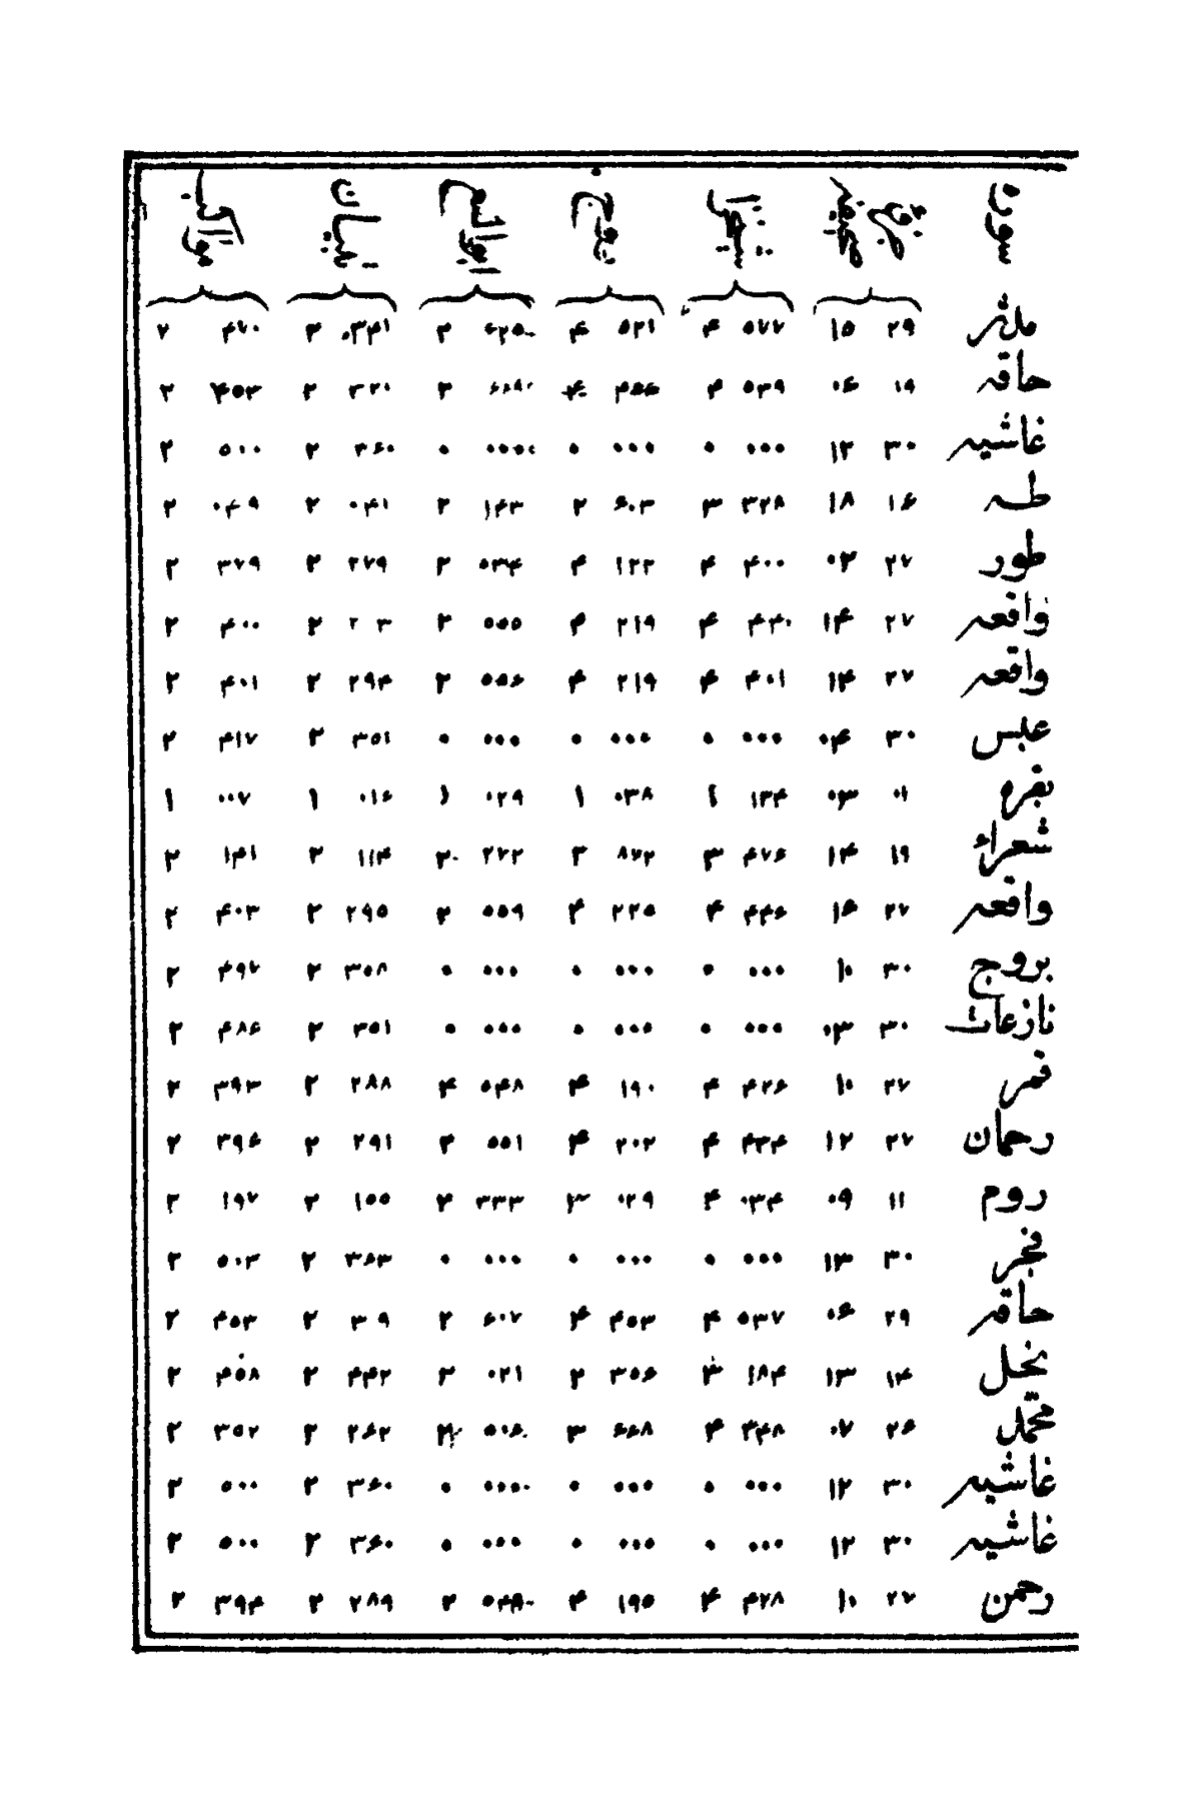 سوره
مدثر ۲۹ ۱۵ ۵۷۷ ۴ ۵۲۱ ۴ ۳۴۱ ۲ ۴۷۰ ۷
حاقه ۱۹ ۰۶ ۵۳۹ ۴ ۳۲۰ ۲ ۴۵۳ ۲
غاشیه ۳۰ ۱۲ ۰۰۰ ۰ ۰۰۰ ۰ ۰۰۰۰ ۰ ۳۶۰ ۲ ۵۰۰ ۲
طه ۱۶ ۱۸ ۳۲۸ ۳ ۶۰۳ ۲ ۱۴۳ ۲ ۰۴۱ ۲ ۰۴۹ ۲
طور ۲۷ ۰۲ ۴۰۰ ۴ ۱۲۲ ۴ ۵۳۴ ۲ ۲۷۹ ۲ ۳۷۹ ۲
واقعه ۲۷ ۱۴ ۴۴۰ ۴ ۲۱۹ ۴ ۵۵۵ ۲ ۲ ۳ ۲ ۴۰۰ ۲
واقعه ۲۷ ۱۴ ۴۰۱ ۴ ۲۱۹ ۴ ۵۵۶ ۲ ۲۹۴ ۲ ۴۰۱ ۲
عبس ۳۰ ۰۴ ۰۰۰ ۰ ۰۰۰ ۰ ۰۰۰ ۰ ۳۵۱ ۲ ۴۱۷ ۲
بقره ۰۱ ۰۳ ۱۳۴ ۱ ۰۳۸ ۱ ۰۲۹ ۱ ۰۱۶ ۱ ۰۰۷ ۱
شعراء ۱۹ ۱۴ ۴۷۶ ۳ ۸۷۲ ۲ ۲۷۲ ۲۰ ۱۱۴ ۲ ۱۴۱ ۲
واقعه ۲۷ ۱۶ ۴۴۶ ۴ ۲۲۵ ۴ ۵۵۹ ۲ ۲۹۵ ۲ ۴۰۳ ۲
بروج ۳۰ ۱۰ ۰۰۰ ۰ ۰۰۰ ۰ ۰۰۰ ۰ ۳۵۸ ۲ ۴۹۷ ۲
نازعات ۳۰ ۰۳ ۰۰۰ ۰ ۰۰۰ ۰ ۰۰۰ ۰ ۳۵۱ ۲ ۴۸۶ ۲
قمر ۲۷ ۱۰ ۴۲۶ ۴ ۱۹۰ ۴ ۵۴۸ ۴ ۲۸۸ ۲ ۳۹۳ ۲
رحمان ۲۷ ۱۲ ۴۳۴ ۴ ۲۰۲ ۴ ۵۵۱ ۲ ۲۹۱ ۲ ۳۹۶ ۲
روم ۱۱ ۰۹ ۰۳۴ ۴ ۰۲۹ ۳ ۳۳۳ ۲ ۱۵۵ ۲ ۱۹۷ ۲
فجر ۳۰ ۱۳ ۰۰۰ ۰ ۰۰۰ ۰ ۰۰۰ ۰ ۳۶۳ ۲ ۵۰۳ ۲
حاقه ۲۹ ۰۶ ۵۳۷ ۴ ۴۵۳ ۴ ۶۰۷ ۲ ۳ ۰ ۹ ۲ ۴۵۳ ۲
نحل ۱۴ ۱۳ ۱۸۴ ۳ ۳۵۶ ۲ ۰۲۱ ۲ ۴۴۲ ۲ ۴۵۸ ۲
محمد ۲۶ ۰۷ ۳۴۸ ۴ ۶۶۸ ۳ ۵۰۶ ۲۶۲ ۲ ۳۵۲ ۲
غاشیه ۳۰ ۱۲ ۰۰۰ ۰ ۰۰۰ ۰ ۰۰۰۰ ۰ ۳۶۰ ۲ ۵۰۰ ۲
غاشیه ۳۰ ۱۲ ۰۰۰ ۰ ۰۰۰ ۰ ۰۰۰ ۰ ۳۶۰ ۲ ۵۰۰ ۲
رحمن ۲۷ ۱۰ ۴۲۸ ۴ ۱۹۵ ۴ ۵۴۹۰ ۲ ۲۸۹ ۲ ۳۹۴ ۲